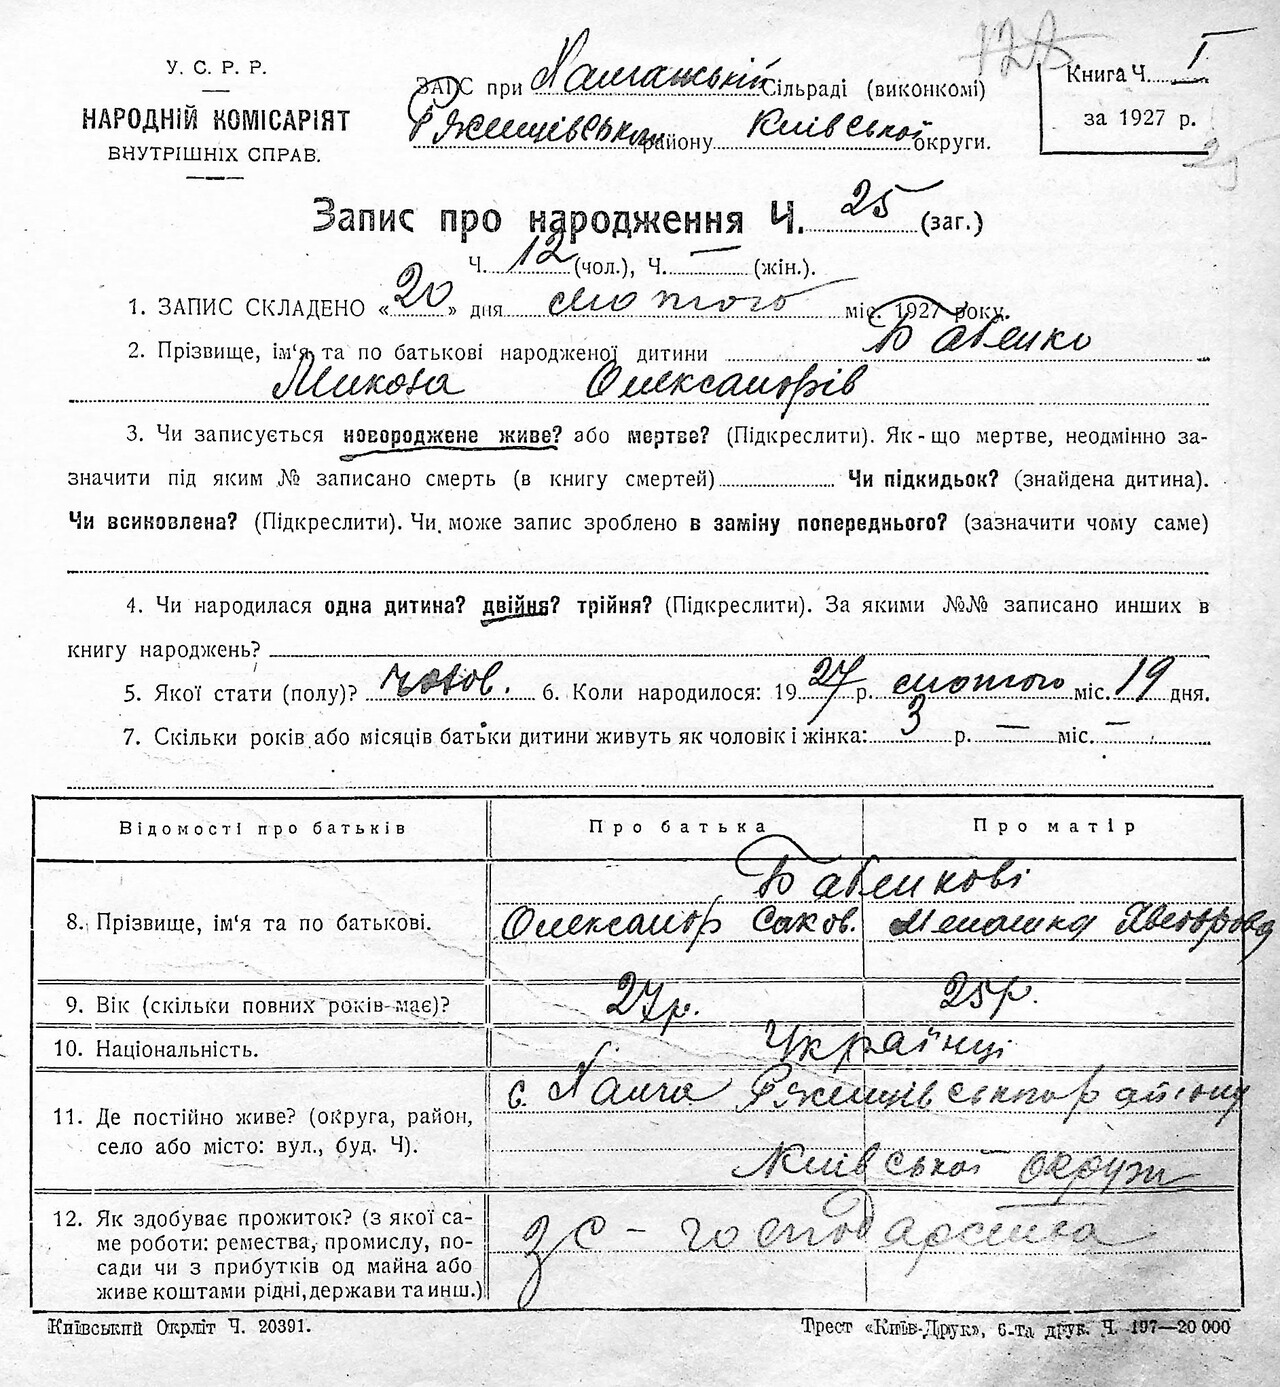 У. С. Р. Р.
НАРОДНІЙ КОМІСАРІЯТ
ВНУТРІШНІХ СПРАВ.
ЗАГС при Халчаській Сільраді (виконкомі)
Ржищівськом району Київської округи.
Книга Ч. I
за 1927 р.
25
Запис про народження Ч. 25 (заг.)
Ч. 12 (чол.), Ч. — (жін.).
1. ЗАПИС СКЛАДЕНО «20» дня лютого міс. 1927 року.
2. Прізвище, ім‘я та по батькові народженої дитини Бабенко
Микола Олександрів
3. Чи записується новороджене живе? або мертве? (Підкреслити). Як-що мертве, неодмінно за-
значити під яким № записано смерть (в книгу смертей) Чи підкидьок? (знайдена дитина).
Чи всиновлена? (Підкреслити). Чи може запис зроблено в заміну попереднього? (зазначити чому саме)
4. Чи народилася одна дитина? двійня? трійня? (Підкреслити). За якими №№ записано инших в
книгу народжень?
5. Якої стати (полу)? чолов. 6. Коли народилося: 1927 р. лютого міс. 19 дня.
7. Скільки років або місяців батьки дитини живуть як чоловік і жінка: 3 р. — міс. —
Відомості про батьків Про батька Про матір
Бабенкові
8. Прізвище, ім‘я та по батькові. Олександр Саков. Меланка
9. Вік (скільки повних років має)? 27р. 25р.
10. Національність. Українці
с. Халча Ржищівського району
11. Де постійно живе? (округа, район,
село або місто: вул., буд. Ч).
Київської округи
12. Як здобуває прожиток? (з якої са-
ме роботи: ремества, промислу, по-
сади чи з прибутків од майна або
живе коштами рідні, держави та инш.)
з с-господарства
Київський Окрліт Ч. 20391.
Трест «Київ-Друк», 6-та друк. Ч. 197—20 000